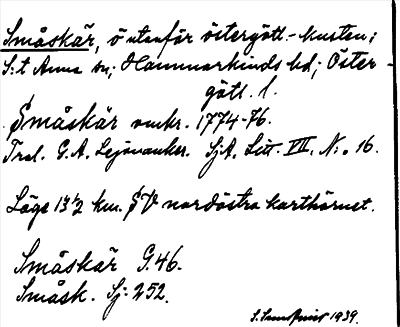 Småskär, ö utanför östergötl.-kusten;
S:t Anna sn; Hammarkinds hd; Öster-
götl. l.
Småskär omkr. 1774-76.
Trol. G.A. Lejonanker. SjA, Litt. VII, N:o 16.
Läge 13½ km. SV nordöstra karthörnet.
Småskär G.46.
Småsk. Sj: 252.
1939.